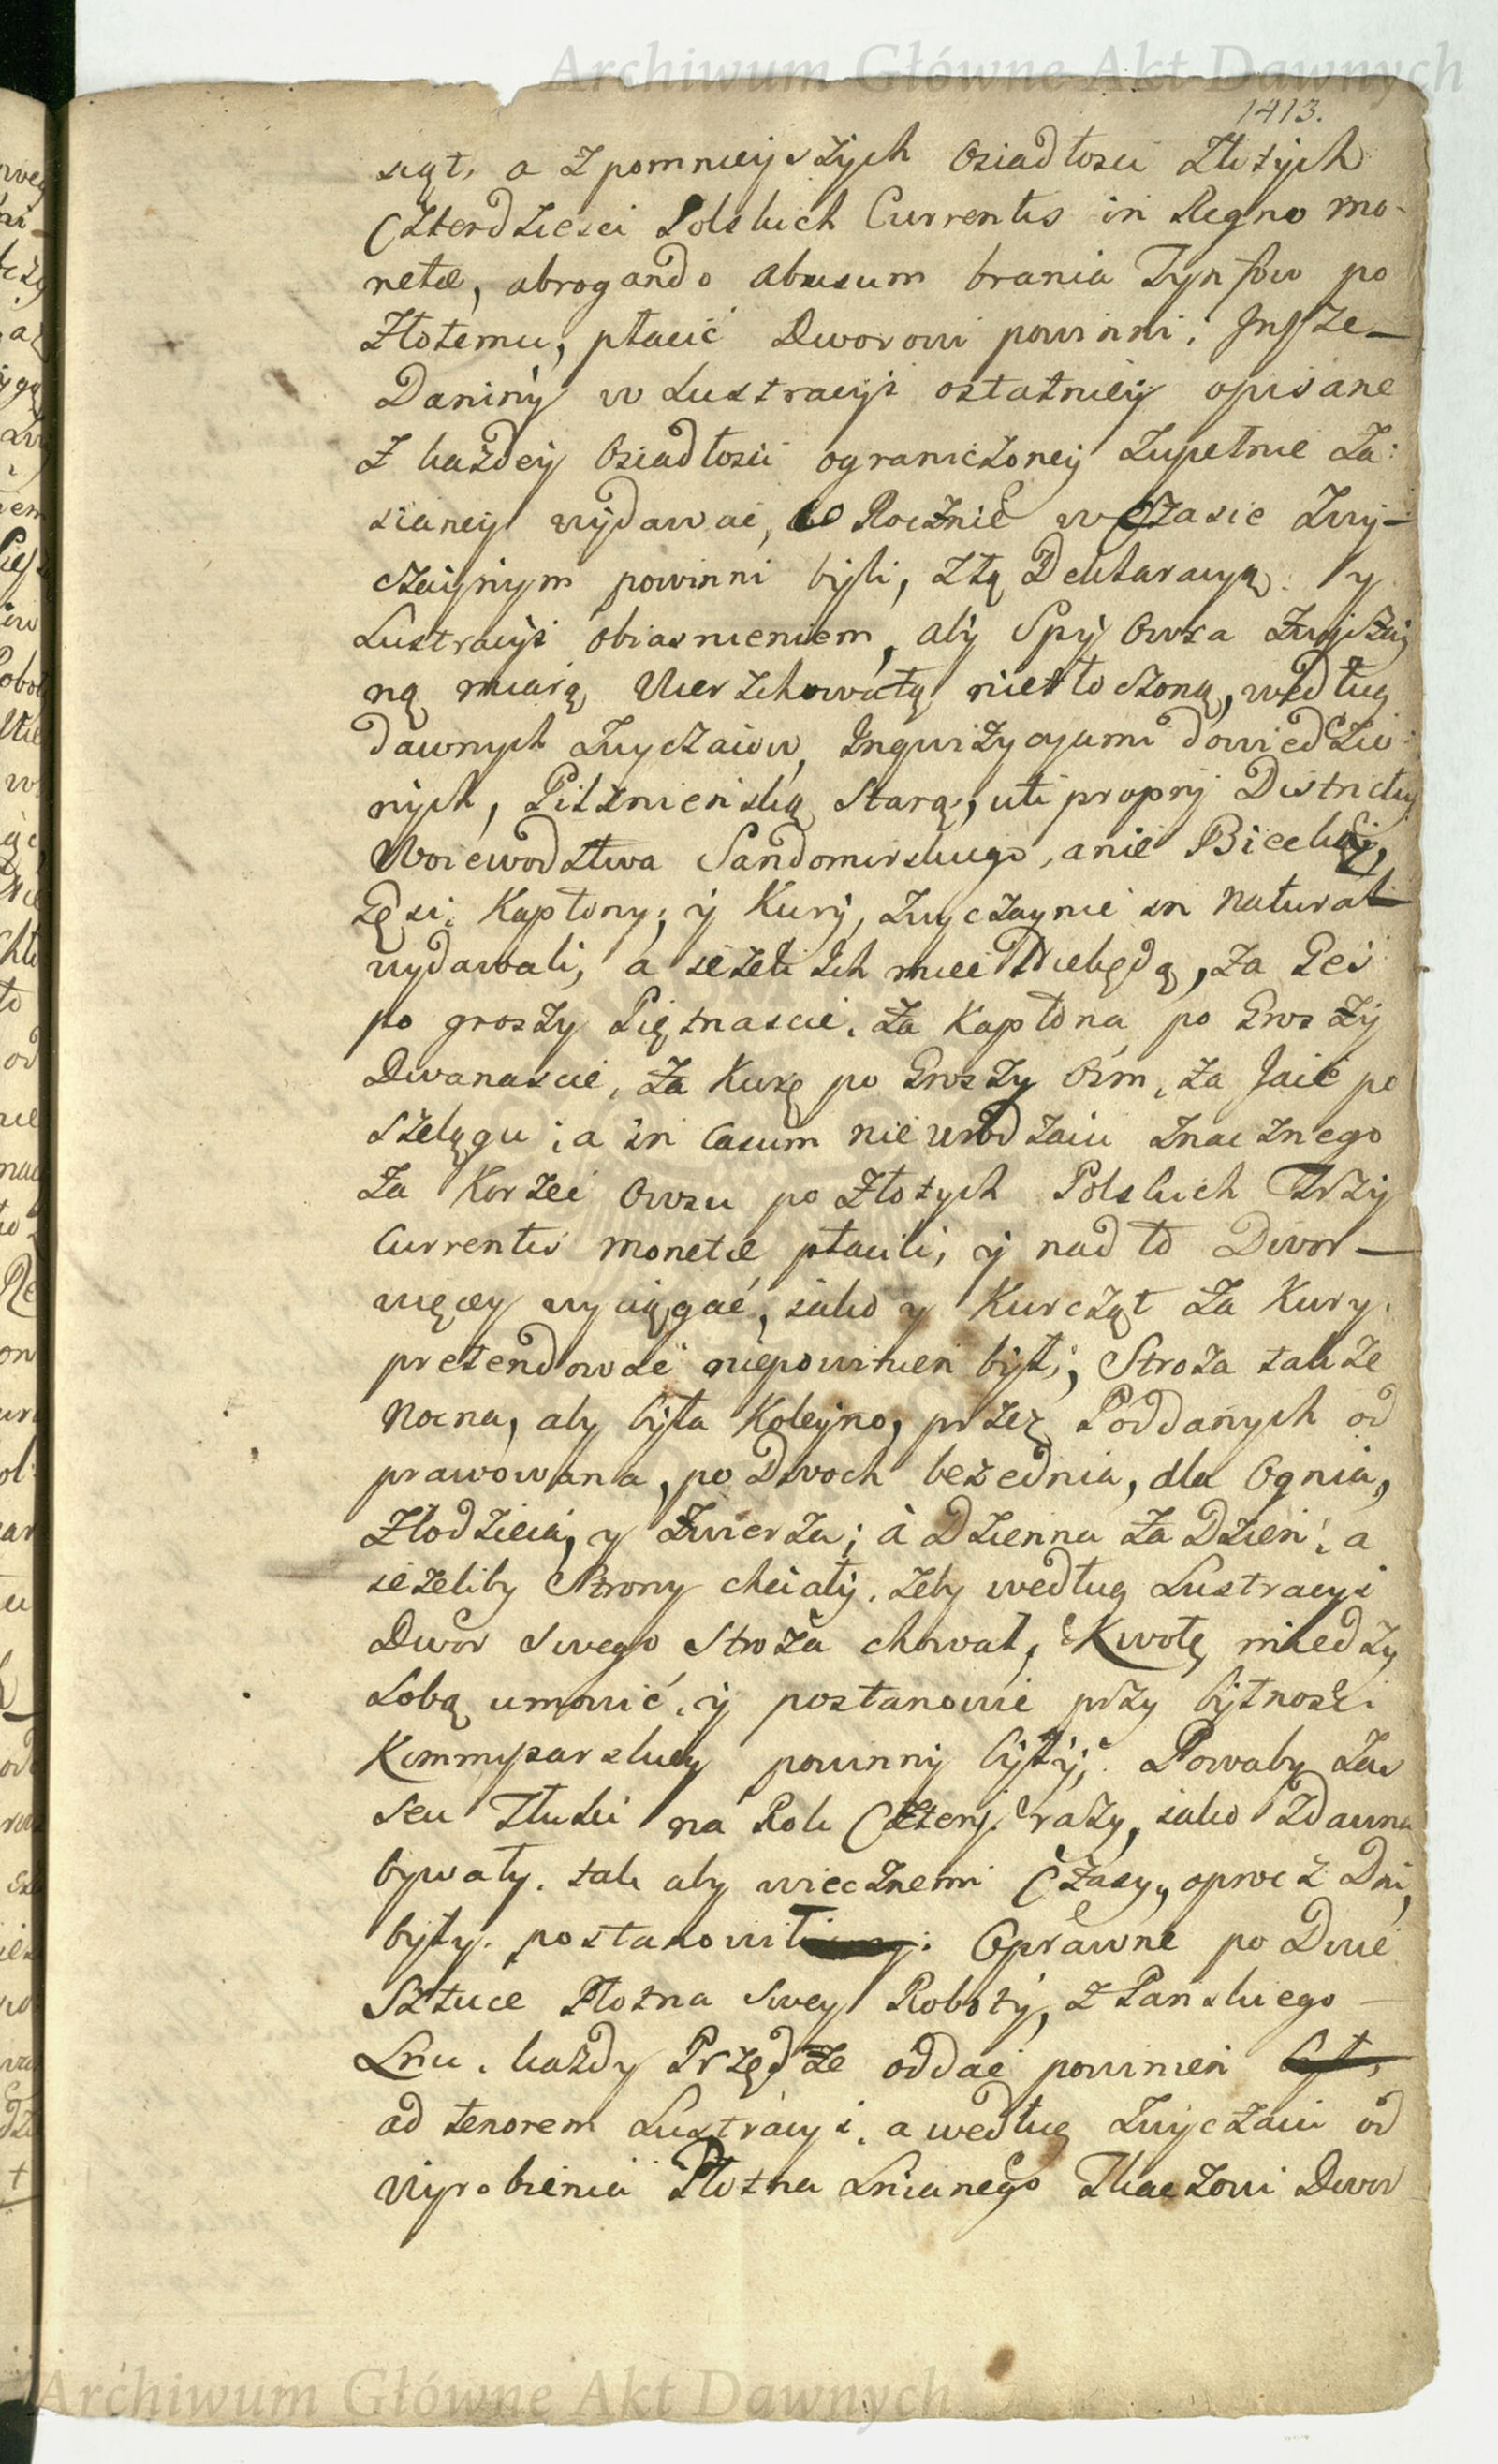 Archiwum Główne Akt Dawnych
1413.
siąt, a z pomnieyszych Osiadłosci Złotych
Czterdziesci Polskich Currentis in Regno mo-
netæ, abrogando abusum brania Tynfow po
Złotemu, płacić Dworowi powinni; Insze
Daniny w Lustracyi ostatniey opisane
z każdey Osiadłosci ograniczoney zupełnie za:
sianey wydawać, co Rocznie w Czasie zwy-
czaynym powinni byli, z tą Deklaracyą y
Lustracyi obiasnieniem, aby Spy Owsa zwyczay
ną miarą Wierzchowatą nietłoczoną, według
dawnych zwyczaiow, Inqwizycyami dowiedzio:
nych, Pilznieńską Starą, uti proprij Districtus
Woiewodztwa Sandomirskiego, a nie Biecką,
Gęsi, Kapłony, y Kury, zwyczaynie in natural
wydawali, a ieżeli Ich mieć Niebędą, za Gęś
po groszy Piętnascie, za Kapłona po Groszy
Dwanascie, za Kurę po Groszy Ośm, za Jaie po
szelągu; a in Casum nieurodzaiu znacznego
za Korzec Owsu po Złotych Polskich Trzy
Currentis monetæ płacili, y nad to Dwor
więcy wyciągać, iako y Kurcząt za Kury
pretendować niepowinien był; Stroża także
Nocna, aby była Koleyno, przez Poddanych od
prawowana, po Dwoch beze dnia, dla Ognia,
Złodzieia, y Zwierza; à Dzienna za Dzień; a
ieżeliby Strony chciały, żeby według Lustracyi
Dwor swego Stroża chował, Kwotę miedzy
sobą umowić, y postanowić przy bytnosci
Kommissarskiey powinny były; Powaby zas
seu Tłuki na Rok Cztery razy, iako zdawna
bywały, tak aby wiecznemi Czasy, oprocz Dni,
były, postanowił: Oprawne po Dwie
Sztuce Płotna swey Roboty, z Pańskiego
Lnu, każdy Przędze oddać powinien był,
ad tenorem Lustracyi, a według zwyczaiu od
wyrobienia Płotna Lnianego Tkaczowi Dwor
Archiwum Główne Akt Dawnych